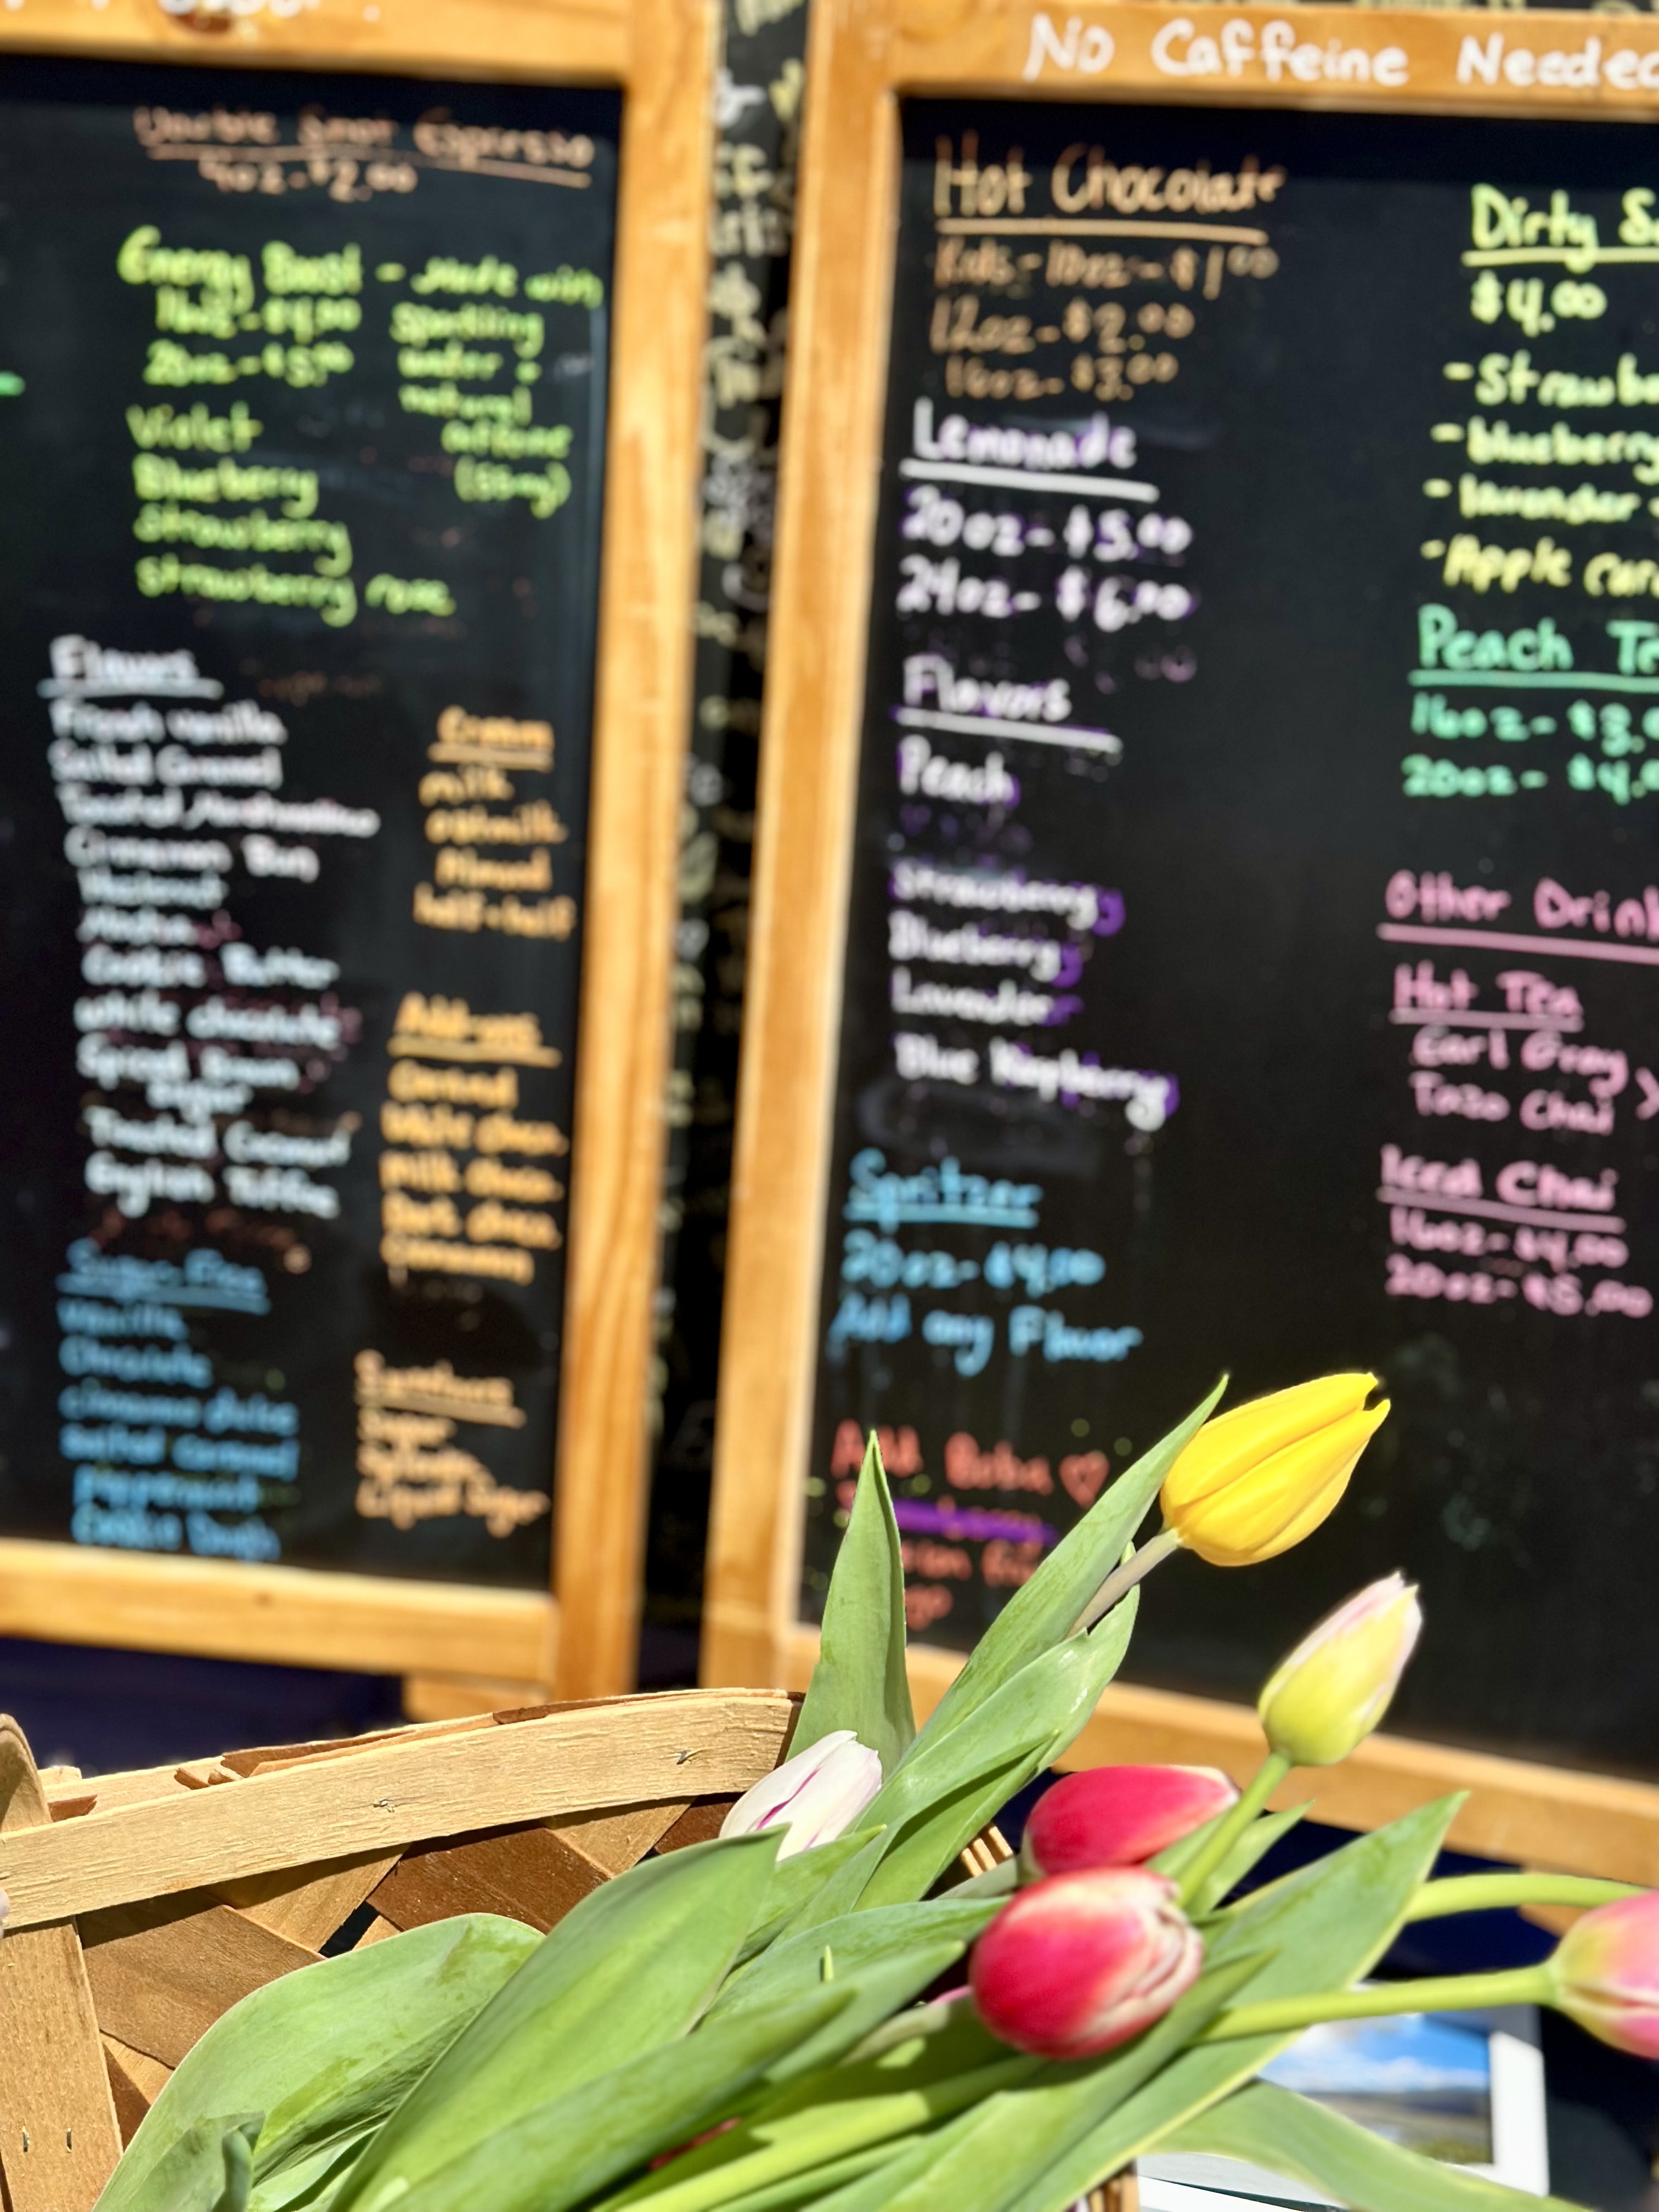 Double Shot Espresso
4oz-$2.00
Energy Boost - Made with
16oz-$4.00 Sparkling
20oz-$5.00 water +
natural
Violet caffeine
Blueberry (55mg)
Strawberry
Strawberry rose
Flavors
French vanilla
Salted Caramel
Toasted Marshmallow
Cinnamon Bun
Hazelnut
Mocha
Cookie Butter
white chocolate
Spiced Brown
Sugar
Toasted Coconut
English Toffee
Sugar Free
Vanilla
Chocolate
cinnamon dulce
salted caramel
Peppermint
Cookie Dough
Cream
milk
oatmilk
Almond
half+half
Add-ons
Caramel
White choco.
Milk choco.
Dark choco.
Cinnamon
Sweetners
Sugar
Splenda
Liquid Sugar
No Caffeine Needed
Hot Chocolate
Kids-10oz-$1.00
12oz-$2.00
16oz-$3.00
Lemonade
20oz-$5.00
24oz-$6.00
Flavors
Peach
Strawberry
Blueberry
Lavender
Blue Raspberry
Spritzer
20oz-$4.00
Add any Flavor
Add Boba ♡
Dirty
$4.00
-blueberry
-lavender
-Apple
Peach
16oz-
20oz-
Other
Hot Tea
Earl Gray
Tazo Chai
Iced Chai
16oz-$4.00
20oz-$5.00